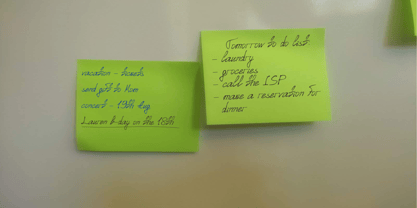 vacation - towels
send gift to Mom
concert - 19th Aug
Lauren B-day on the 16th
Tomorrow to do list
- laundry
- groceries
- call the ISP
- make a reservation for
dinner